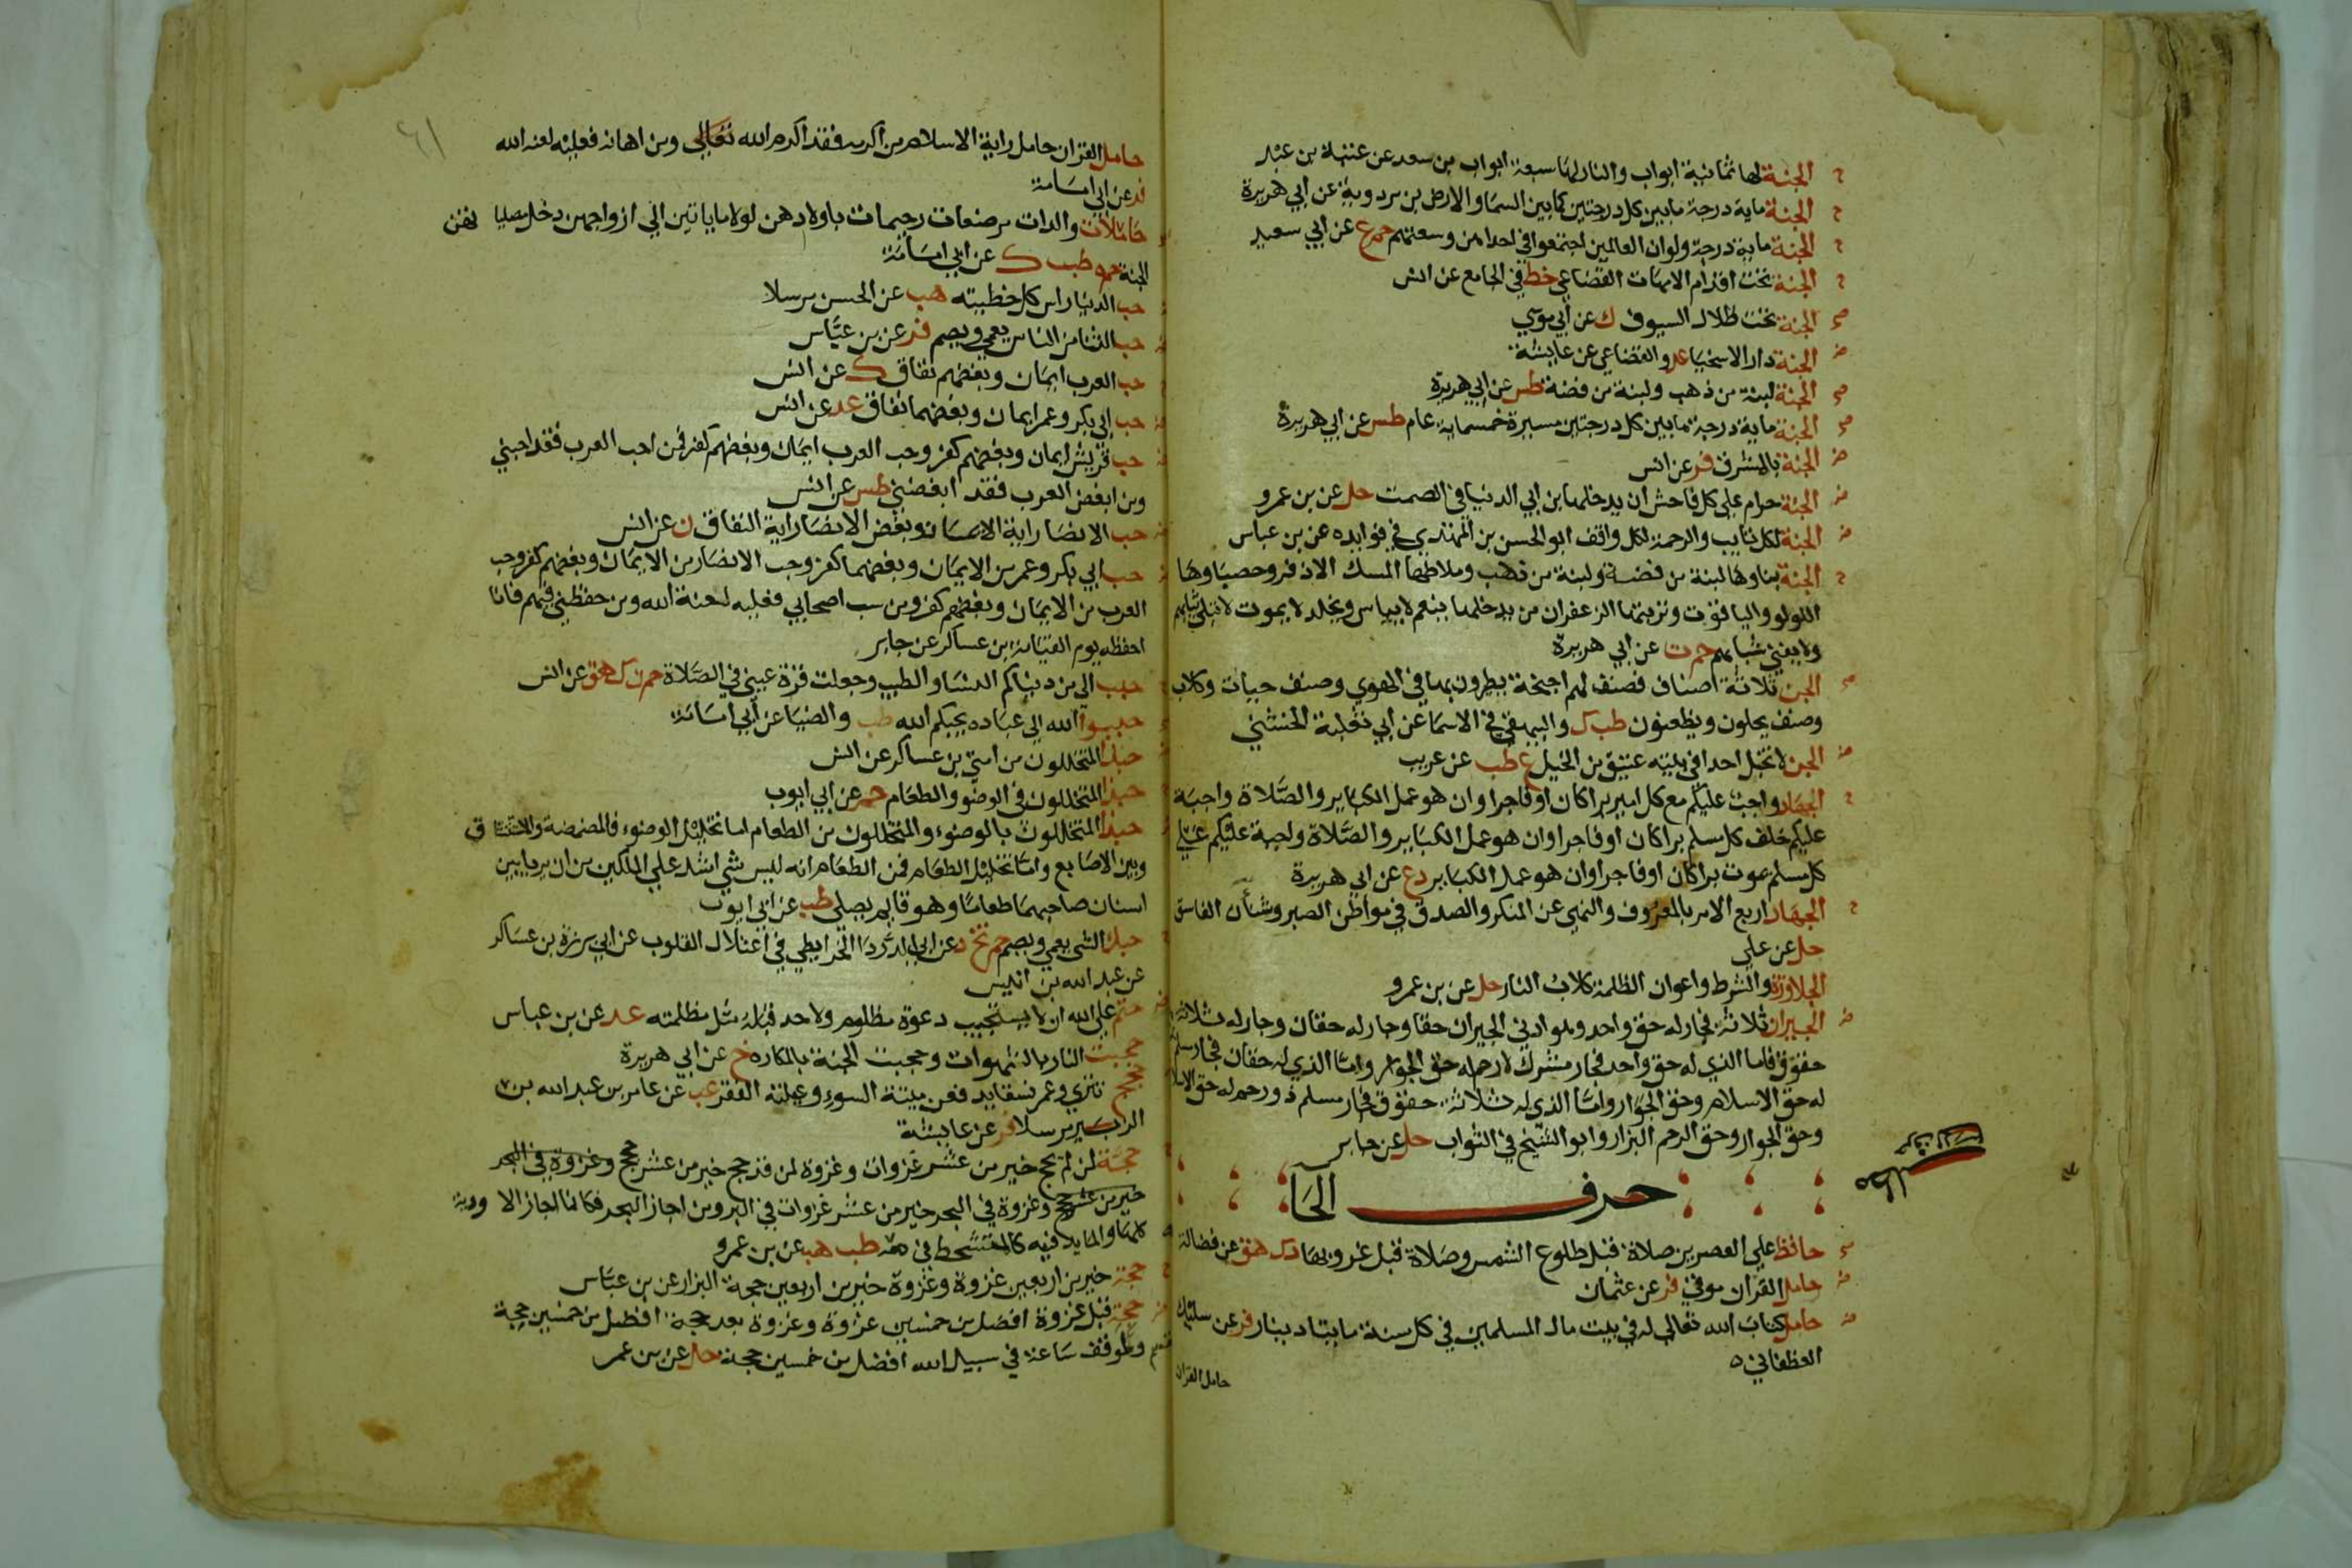 الجنة لها ثمانية ابواب والنار لها سبعة ابواب بن سعد عن عتبة بن عبد
الجنة ماية درجة مابين كل درجتين كما بين السما والارض بن مردوية عن ابي هريرة
الجنة ماية درجة ولو ان العالمين اجتمعوا في احداهن وسعتهم حم ع عن ابي سعيد
الجنة تحت اقدام الامهات القضاعي خط في الجامع عن انس
الجنة تحت ظلال السيوف ك عن ابي موسي
الجنة دار الاسخيا عد والقضاعي عن عايشة
الجنة لبنة من ذهب ولبنة من فضة طس عن ابي هريرة
الجنة ماية درجة مابين كل درجتين مسيرة خمسماية عام طس عن ابي هريرة
الجنة بالمشرق فر عن انس
الجنة حرام علي كل فاحش ان يدخلها بن ابي الدنيا في الصمت حل عن بن عمرو
الجنة لكل تايب والرحمة لكل واقف ابو الحسن بن المهتدي في فوايده عن بن عباس
الجنة بناوها لبنة من فضة ولبنة من ذهب وملاطها المسك الاذفر وحصباوها
اللولو والياقوت وتربتها الزعفران من يدخلها ينعم لا يياس ويخلد لا يموت لا تبلي ثيابهم
ولا يفني شبابهم حم ت عن ابي هريرة
الجن ثلاثة اصناف فصنف لهم اجنحة يطيرون بها في الهوي وصنف حيات وكلاب
وصنف يحلون ويظعنون طب ك والبيهقي في الاسما عن ابي ثعلبة الخشني
الجن لا تخبل احدا في بيته عتيق من الخيل ع طب عن عريب
الجهاد واجب عليكم مع كل امير براكان اوفاجرا وان هو عمل الكباير والصلاة واجبة
عليكم خلف كل مسلم براكان اوفاجرا وان هو عمل الكباير والصلاة واجبة عليكم علي
كل مسلم يموت براكان اوفاجرا وان هو عمل الكباير د ع عن ابي هريرة
الجهاد اربع الامر بالمعروف والنهي عن المنكر والصدق في مواطن الصبر وشنأن الفاسق
حل عن علي
الجلاوزة والشرط واعوان الظلمة كلاب النار حل عن بن عمرو
الجيران ثلاثة فجار له حق واحد وهو ادني الجيران حقا وجار له حقان وجار له ثلاثة
حقوق فاما الذي له حق واحد فجار مشرك لا رحم له حق الجوار واما الذي له حقان فجار مسلم
له حق الاسلام وحق الجوار واما الذي له ثلاثة حقوق فجار مسلم ذو رحم له حق الاسلام
وحق الجوار وحق الرحم البزار وابو الشيخ في الثواب حل عن جابر
حرف الحا
حافظ علي العصرين صلاة قبل طلوع الشمس وصلاة قبل غروبها د ك هق عن فضالة
حامل القران موقي فر عن عثمان
حامل كتاب الله تعالي له في بيت مال المسلمين في كل سنة مايتا دينار فر عن سليك
الغطفاني
حامل القران
حامل القران حامل راية الاسلام من اكرمه فقد اكرم الله تعالي ومن اهانه فعليه لعنة الله
فر عن ابي امامة
حاملات والدات مرضعات رحيمات باولادهن لولا ماياتين الي ازواجهن دخل مصلياتهن
الجنة حم ه طب ك عن ابي امامة
حب الدنيا راس كل خطيئه هب عن الحسن مرسلا
حب الثنا من الناس يعمي ويصم فر عن بن عباس
حب العرب ايمان وبغضهم نفاق ك عن انس
حب ابي بكر وعمر ايمان وبغضهما نفاق عد عن انس
حب قريش ايمان وبغضهم كفر وحب العرب ايمان وبغضهم كفر فمن احب العرب فقد احبني
ومن ابغض العرب فقد ابغضني طس عن انس
حب الانصار اية الايمان وبغض الانصار اية النفاق ن عن انس
حب ابي بكر وعمر من الايمان وبغضهما كفر وحب الانصار من الايمان وبغضهم كفر وحب
العرب من الايمان وبغضهم كفر ومن سب اصحابي فعليه لعنة الله ومن حفظني فيهم فانا
احفظه يوم القيامة بن عساكر عن جابر
حبب الي من دنياكم النسا والطيب وجعلت قرة عيني في الصلاة حم ن ك هق عن انس
حببوا الله الي عباده يحبكم الله طب والضيا عن ابي امامة
حبذا المتخللون من امتي بن عساكر عن انس
حبذا المتخللون في الوضو والطعام حم عن ابي ايوب
حبذا المتخللون بالوضوء والمتخللون من الطعام اما تخليل الوضوء فالمضمضة والاستنشاق
وبين الاصابع واما تخليل الطعام فمن الطعام انه ليس شي اشد علي الملكين من ان يريا بين
اسنان صاحبهما طعاما وهو قايم يصلي طب عن ابي ايوب
حبك الشي يعمي ويصم حم تخ د عن ابي الدردا الخرايطي في اعتلال القلوب عن ابي برزة بن عساكر
عن عبد الله بن انيس
حتم علي الله ان لا يستجيب دعوة مظلوم ولاحد قبله مثل مظلمته عد عن بن عباس
حجبت النار بالشهوات وحجبت الجنة بالمكاره خ عن ابي هريرة
حجج تتري وعمر نسقا يدفعن ميتة السوء وعيلة الفقر عب عن عامر بن عبد الله بن
الزبير مرسلا فر عن عايشة
حجة لمن لم يحج خير من عشر غزوات وغزوة لمن قد حج خير من عشر حجج وغزوة في البحر
خير من عشر حجج وغزوة في البحر خير من عشر غزوات في البر ومن اجاز البحر فكانما اجاز الاودية
كلها والمايد فيه كالمتشحط في دمه طب هب عن بن عمرو
حجة خير من اربعين غزوة وغزوة خير من اربعين حجة البزار عن بن عباس
حجة قبل غزوة افضل من خمسين غزوة وغزوة بعد حجة افضل من خمسين حجة
ولموقف ساعة في سبيل الله افضل من خمسين حجة حل عن بن عمر